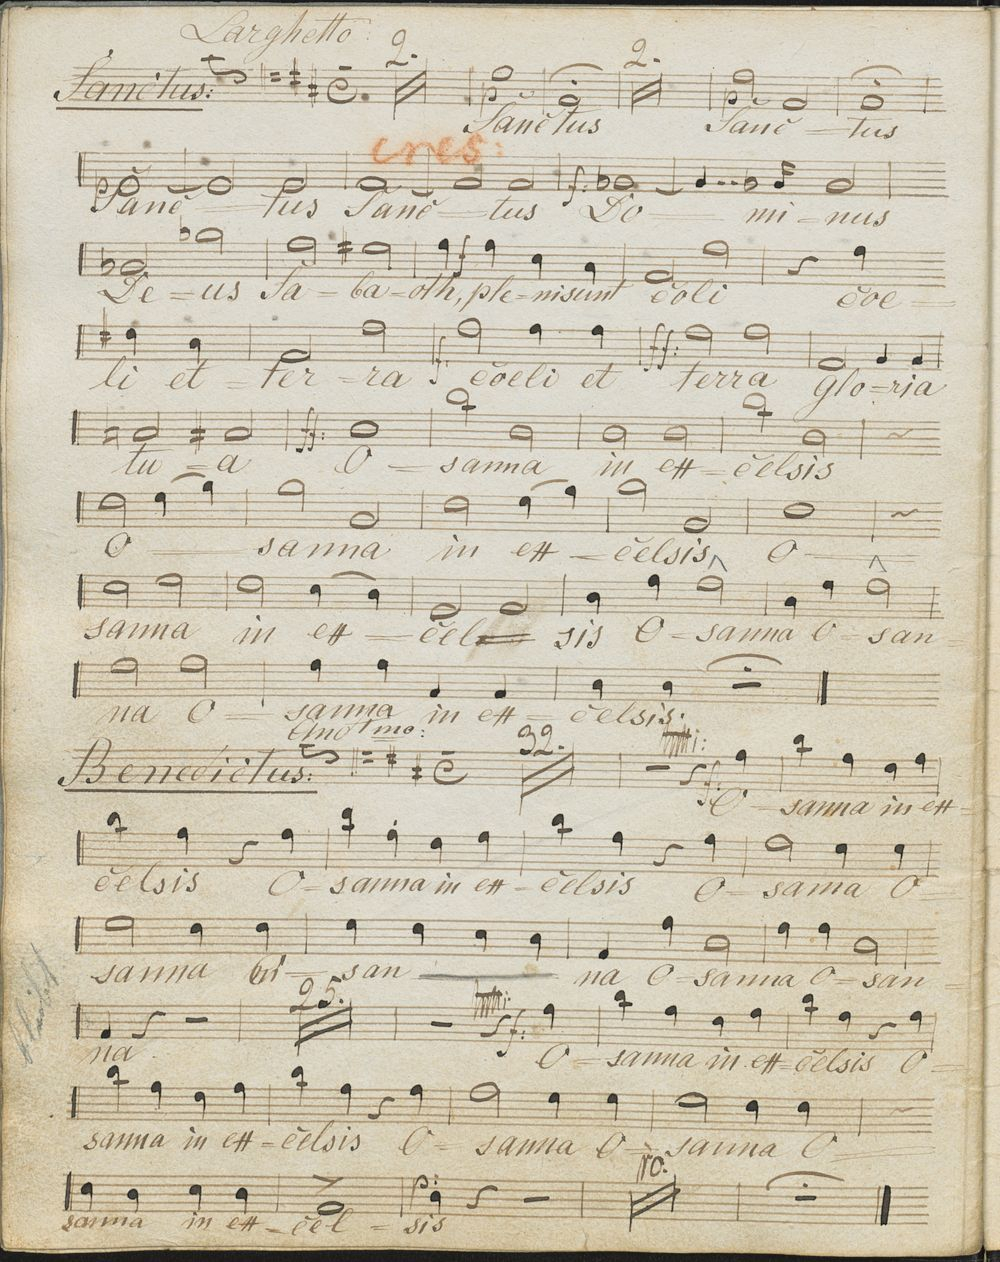 Larghetto:
Sanctus: 2. 2.
Sanctus Sanc - tus
cres:
Sanc - tus Sanc - tus Do - mi - nus
De - us Sa - ba - oth, ple - nisunt coli coe -
li et - ter - ra coeli et terra glo - ria
tu - a O - sanna in ex - celsis
O - sanna in ex - celsis O -
sanna in ex - cel - sis O - sanna O - san -
na O - sanna in ex - celsis.
Benedictus: 32. tutti:
O - sanna in ex -
celsis O - sanna in ex - celsis O - sanna O -
sanna O - san - na O - sanna O - san -
25. tutti:
na O - sanna in ex - celsis O -
sanna in ex - celsis O - sanna O - sanna O -
10.
sanna in ex - cel - sis